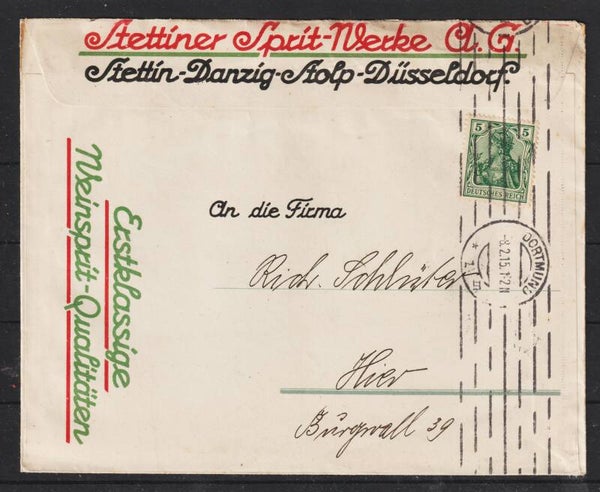 Stettiner Sprit-Werke A.G.
Stettin-Danzig-Stolp-Düsseldorf.
5 5
DEUTSCHES REICH
An die Firma
Rich. Schlüter
Hier
Burgwall 39
DORTMUND
-8.2.15.1-2N
* 1 m
Erstklassige
Weinsprit-Qualitäten